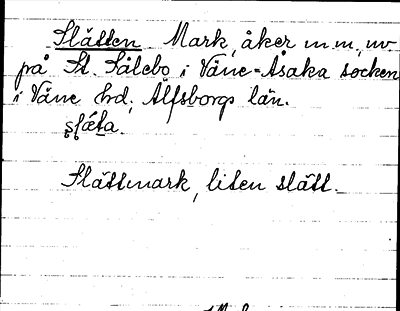 Slätten Mark, åker m.m., nv
på St. Sålebo i Väne-Åsaka socken
i Väne hd, Älfsborgs län.
Slättmark, liten slätt.